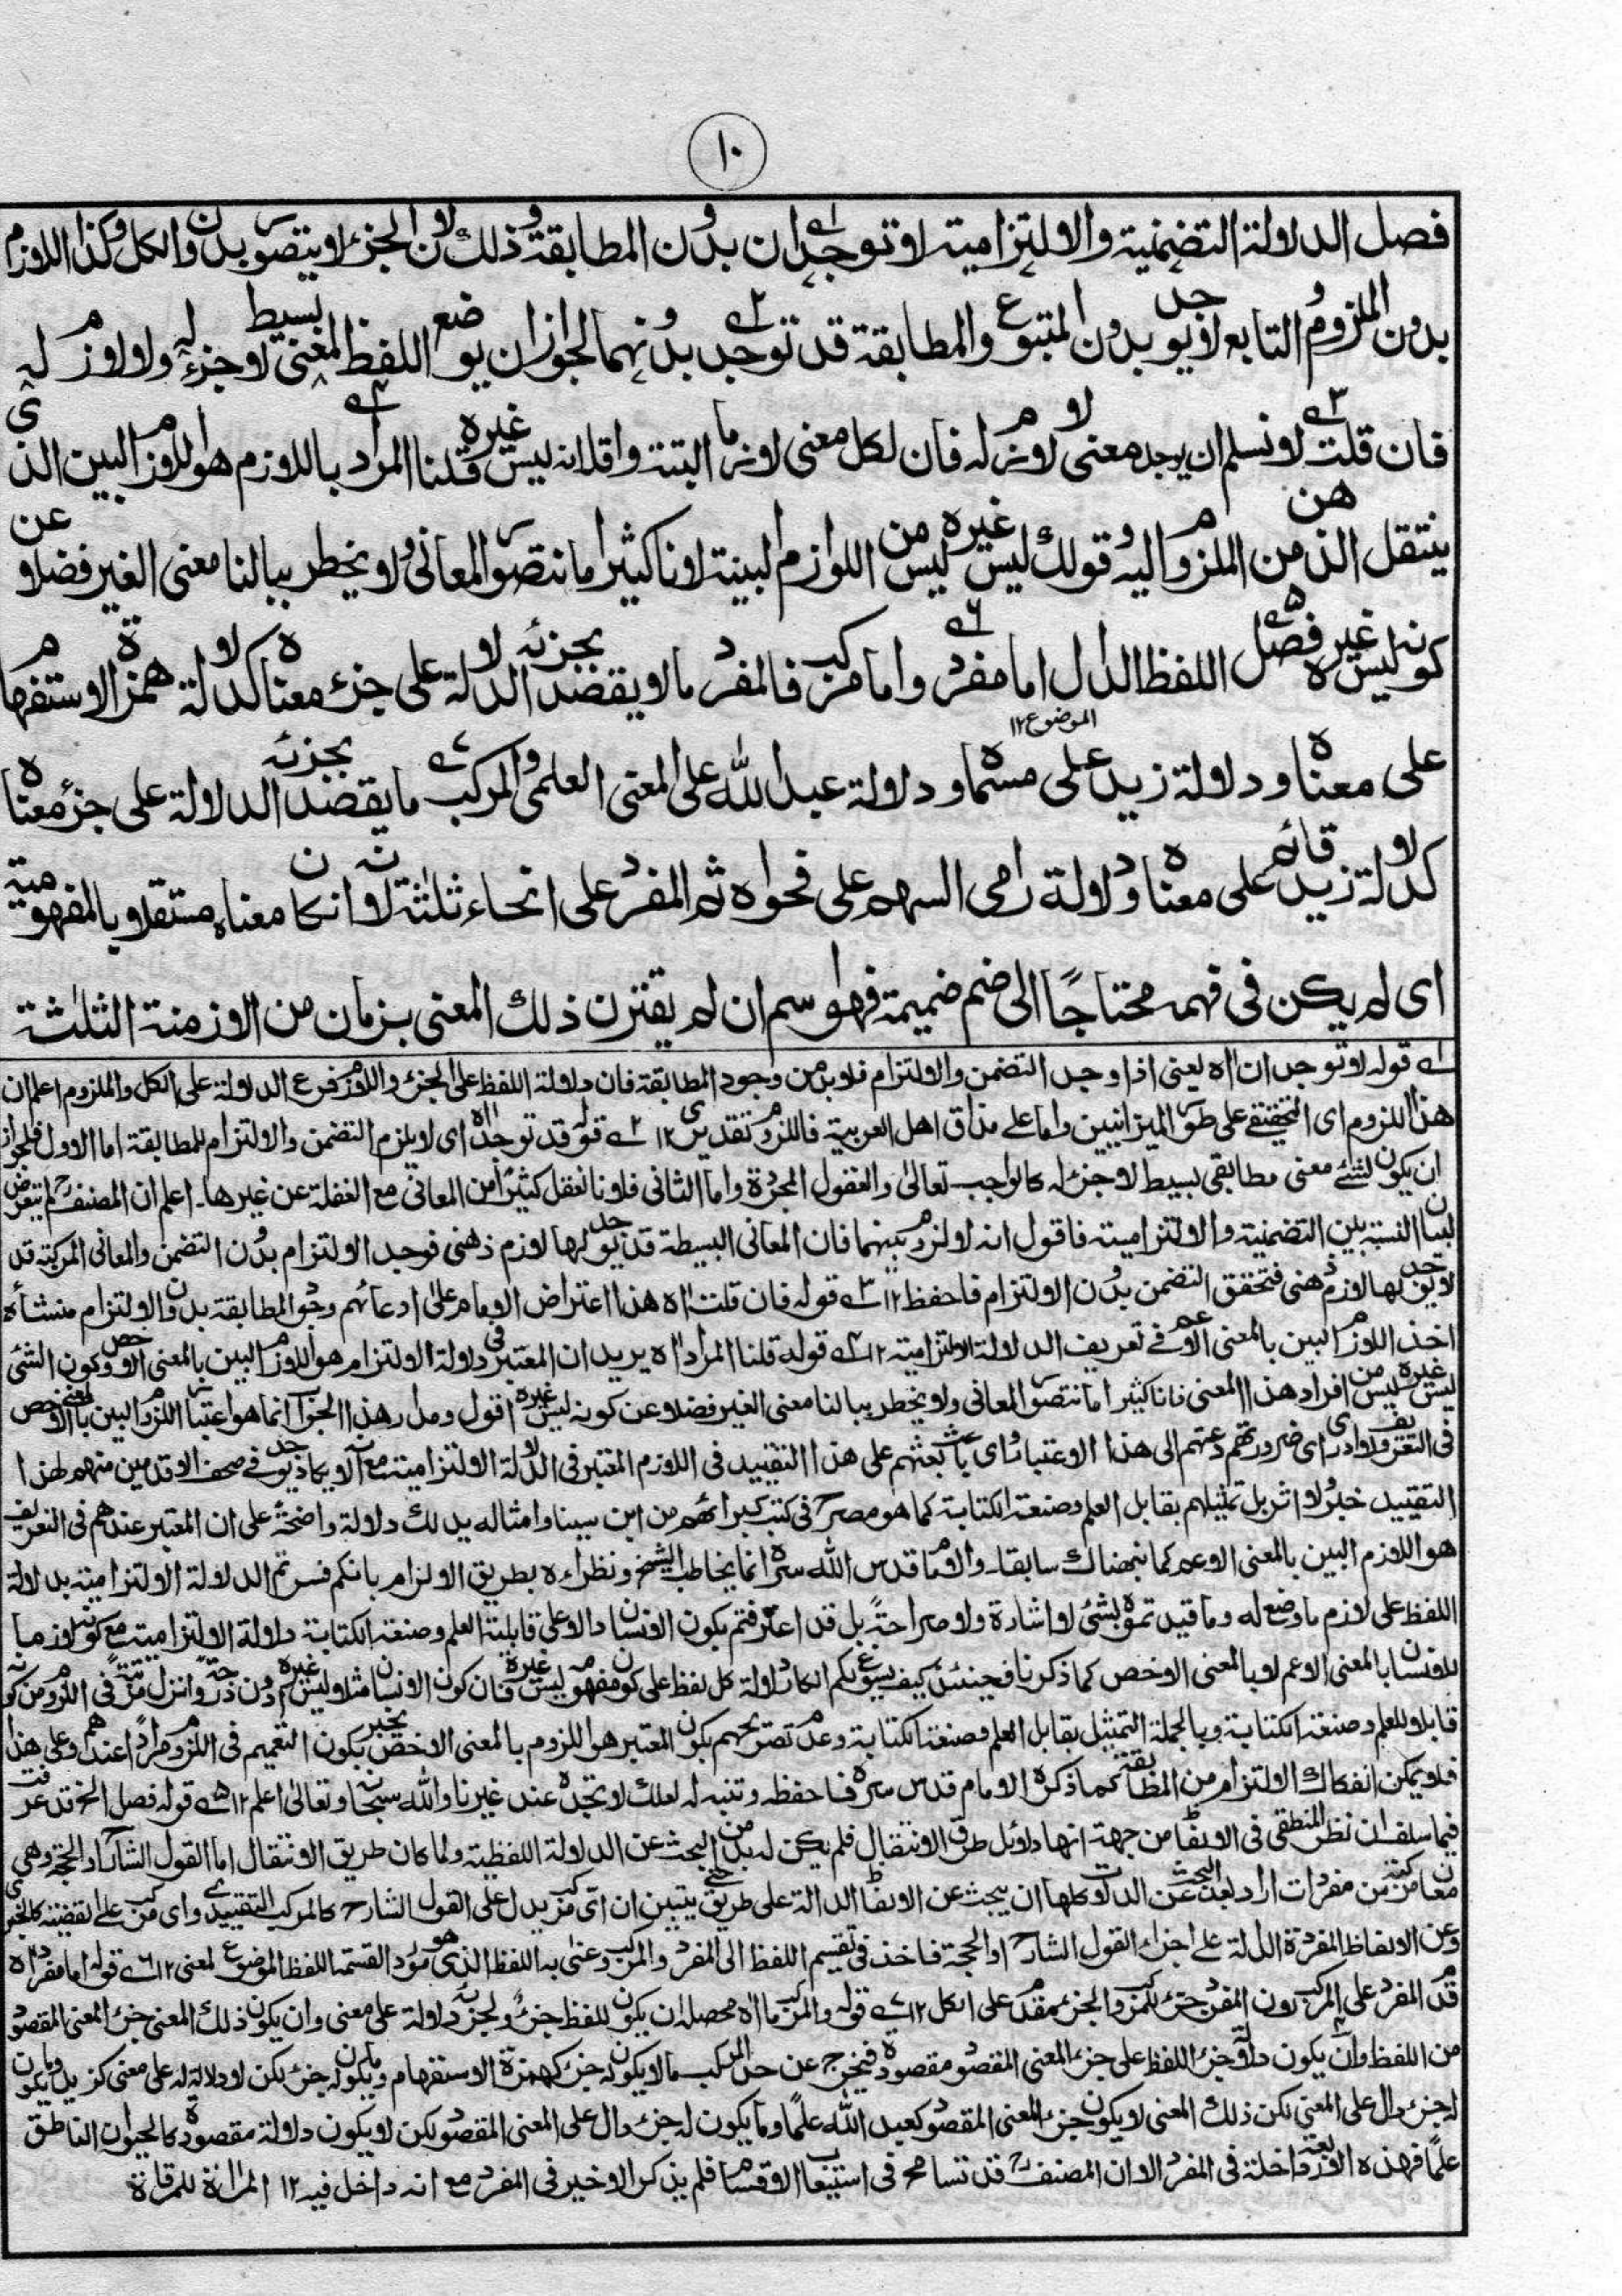 ١٠
فصل الدلالة التضمنية والالتزامية لا توجدان بدون المطابقة وذلك لان الجزء لا يتصور بدون الكل وكذا اللازم
بدون الملزوم التابع لا يوجد بدون المتبوع والمطابقة قد توجد بدونهما لجواز ان يوضع اللفظ لمعنى بسيط لا جزء له ولا لازم له
فان قلت لا نسلم ان يوجد معنى لا لازم له فان لكل معنى لازما البتة واقله انه ليس غيره قلنا المراد باللازم هو اللازم البين الذي
ينتقل الذهن من الملزوم اليه وقولك ليس غيره ليس من اللوازم البينة لانا كثيرا ما نتصور المعاني ولا يخطر ببالنا معنى الغير فضلا عن
كونه ليس غيره فصل اللفظ الدال اما مفرد واما مركب فالمفرد ما لا يقصد بجزئه الدلالة على جزء معناه كدلالة همزة الاستفهام
على معناه ودلالة زيد على مسماه ودلالة عبد الله على المعنى العلمي والمركب ما يقصد بجزئه الدلالة على جزء معناه
الموضوع ١٢
كدلالة زيد قائم على معناه ودلالة رامي السهم على فحواه ثم المفرد على انحاء ثلثة لانه ان كان معناه مستقلا بالمفهومية
اى لم يكن فى فهمه محتاجًا الى ضم ضميمة فهو اسم ان لم يقترن ذلك المعنى بزمان من الازمنة الثلثة
١ے قوله لا توجدان اه يعنى اذا وجد التضمن والالتزام فلا بد من وجود المطابقة فان دلالة اللفظ على الجزء واللازم فرع الدلالة على الكل والملزوم اعلم ان
هذا اللزوم اى التحقيقي على طور الميزانيين واما على مذاق اهل العربية فاللزوم تقديرى ١٢ ٢ے قوله قد توجد اه اى لا يلزم التضمن والالتزام للمطابقة اما الاول فلجواز
ان يكون لشئ معنى مطابقى بسيط لا جزء له كالواجب تعالىٰ والعقول المجردة واما الثانى فلانا نعقل كثيرًا من المعانى مع الغفلة عن غيرها۔ اعلم ان المصنف لم يتعرض
لبيان النسبة بين التضمنية والالتزامية فاقول انه لا لزوم بينهما فان المعانى البسيطة قد يوجد لها لازم ذهنى فوجد الالتزام بدون التضمن والمعانى المركبة قد
لا يوجد لها لازم ذهنى فتحقق التضمن بدون الالتزام فاحفظ ١٢ ٣ے قوله فان قلت اه هذا اعتراض الامام على ادعائهم وجود المطابقة بدون الالتزام منشأه
اخذ اللازم البين بالمعنى الاعم فى تعريف الدلالة الالتزامية ١٢ ٤ے قوله قلنا المراد اه يريد ان المعتبر فى دلالة الالتزام هو اللازم البين بالمعنى الاخص وكون الشئ
ليس غيره ليس من افراد هذا المعنى فانا كثيرا ما نتصور المعانى ولا يخطر ببالنا معنى الغير فضلا عن كونه ليس غيره اقول ومدار هذا الجواب انما هو اعتبار اللازم البين بالمعنى الاخص
فى التعريف ولا ادرى اى ضرورة دعتهم الى هذا الاعتبار واى باعث بعثهم على هذا التقييد فى اللازم المعتبر فى الدلالة الالتزامية مع انه لا يوجد فى صحف الاقدمين منهم لهذا
التقييد خبر ولا اثر بل تمثيلهم بقابل العلم وصنعة الكتابة كما هو مصرح فى كتب كبرائهم من ابن سينا وامثاله يدلك دلالة واضحة على ان المعتبر عندهم فى التعريف
هو اللازم البين بالمعنى الاعم كما نبهناك سابقا۔ والامام قدس الله سره انما يخاطب الشيخ ونظراءه بطريق الالزام بانكم فسرتم الدلالة الالتزامية بدلالة
اللفظ على لازم ما وضع له وما قيدتموه بشئ لا اشارة ولا صراحةً بل قد اعترفتم بكون الانسان دالا على قابلية العلم وصنعة الكتابة دلالة الالتزامية مع كونه لازما
للانسان بالمعنى الاعم لا بالمعنى الاخص كما ذكرنا فحينئذ كيف يسوغ لكم انكار دلالة كل لفظ على كون مفهومه ليس غيره فان كون الانسان مثلا ليس غيره
قابلا للعلم وصنعة الكتابة وبالجملة التمثيل بقابل العلم وصنعة الكتابة وعدم تصريحهم بكون المعتبر هو اللزوم بالمعنى الاخص يخبر بكون التعميم فى اللزوم مرادًا عندهم وعلى هذا
فلا يمكن انفكاك الالتزام من المطابقة كما ذكره الامام قدس سره فاحفظه وتنبه له لعلك لا تجده عند غيرنا والله سبحانه وتعالىٰ اعلم ١٢ ٥ے قوله فصل الخ قد عرفت
فيما سلف ان نظر المنطقى فى الالفاظ من جهة انها دلائل طرق الانتقال فلم يكن له بد من البحث عن الدلالة اللفظية ولما كان طريق الانتقال اما القول الشارح او الحجة وهى
معان مركبة من مفردات اراد بعد البحث عن الدلالات وكلها ان يبحث عن الالفاظ الدالة على طريق حتى يتبين ان اى مركب يدل على القول الشارح كالمركب التقييدى واى مركب على القضية كالخبرى
وعن الالفاظ المفردة الدالة على اجزاء القول الشارح او الحجة فاخذ فى تقسيم اللفظ الى المفرد والمركب وعنى به اللفظ الذى هو مورد القسمة اللفظ الموضوع لمعنى ١٢ ٦ے قوله اما مفرد اه
قدم المفرد على المركب لان المفرد جزء للمركب والجزء مقدم على الكل ١٢ ٧ے قوله والمركب ما اه محصله ان يكون للفظ جزء ولجزئه دلالة على معنى وان يكون ذلك المعنى جزء المعنى المقصود
من اللفظ وان يكون دلالة جزء اللفظ على جزء المعنى المقصود مقصودة فيخرج عن حد المركب ما لا يكون له جزء كهمزة الاستفهام وما يكون له جزء لكن لا دلالة له على معنى كزيد وما يكون
له جزء دال على المعنى لكن ذلك المعنى لا يكون جزء المعنى المقصود كعبد الله علمًا وما يكون له جزء دال على المعنى المقصود لكن لا يكون دلالته مقصودة كالحيوان الناطق
علمًا فهذه الاربعة داخلة فى المفرد الا ان المصنف قد تسامح فى استيعاب الاقسام فلم يذكر الاخير فى المفرد مع انه داخل فيه ١٢ المرأة للمرقاة